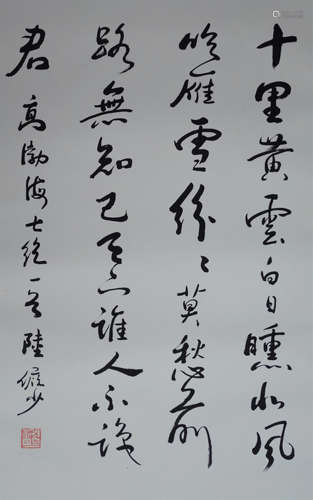 十里黄雲白日曛北風
吹雁雪紛〻莫愁前
路無知己天下誰人不識
君 高渤海七絶一首 陸儼少